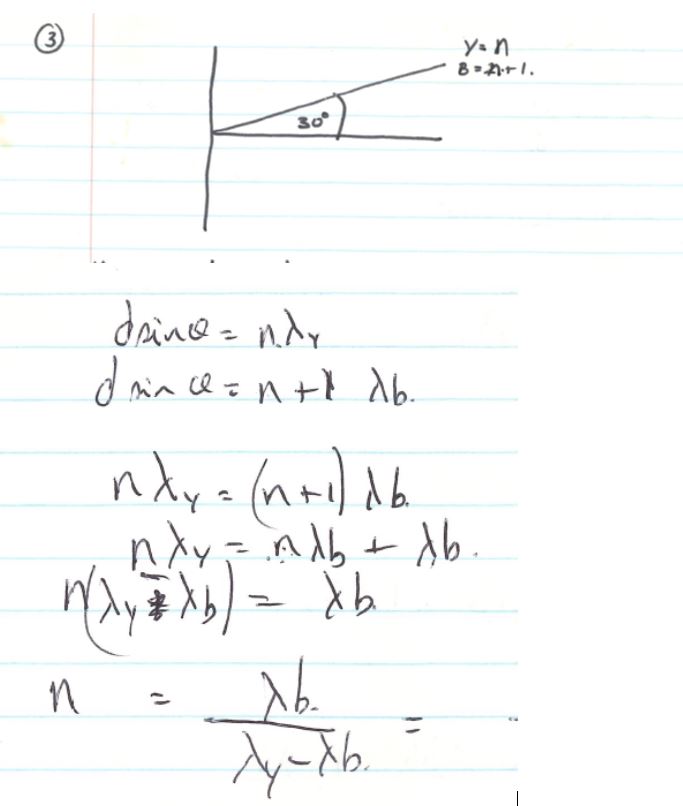 ③
Y = n
B = n+1.
30°
d sin θ = nλY
d sin θ = n+1 λb.
nλY = (n+1) λb.
nλY = nλb + λb.
n(λY - λb) = λb.
n = λb. / λy-λb. =